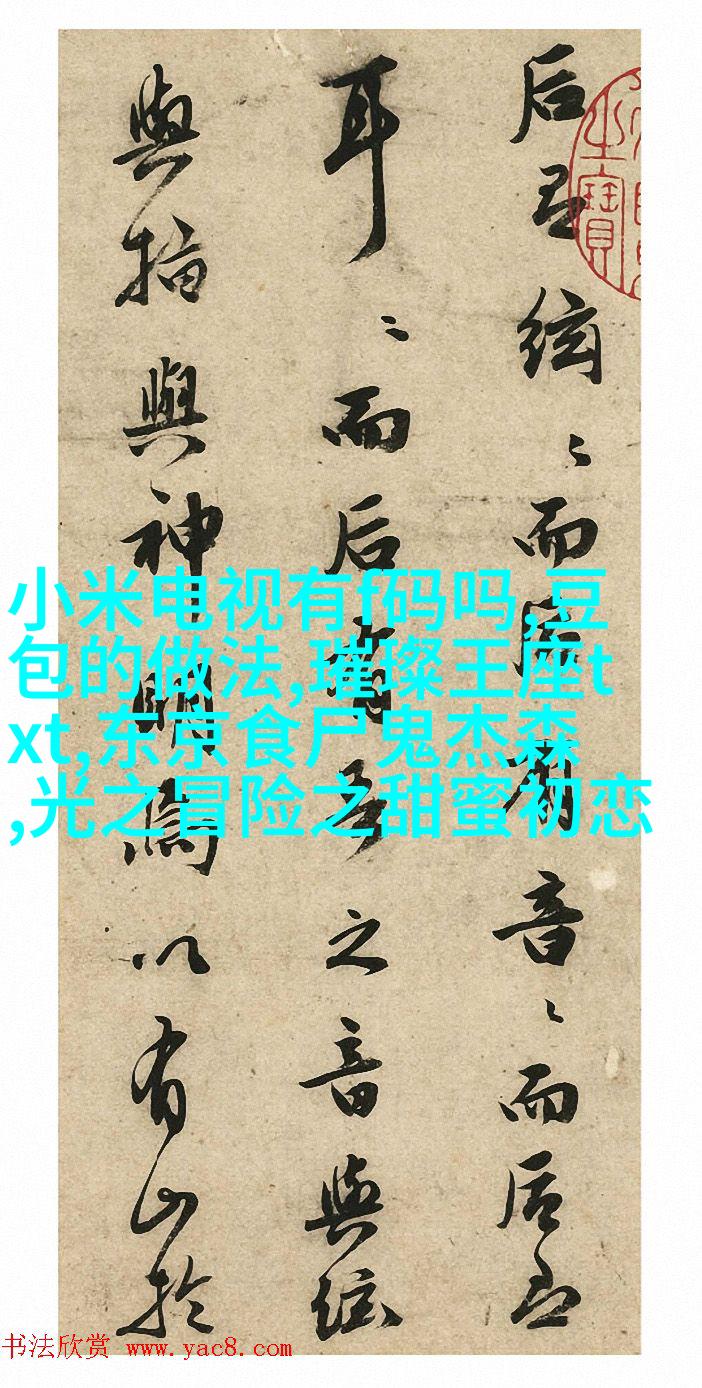 后有絃〻而后有音〻而后
耳〻而后有之音與絃
與指與神明焉以有山於
之寶
小米电视有f码吗,豆
包的做法,璀璨王座t
xt,东京食尸鬼杰森
,光之冒险之甜蜜初恋
书法欣赏 www.yac8.com